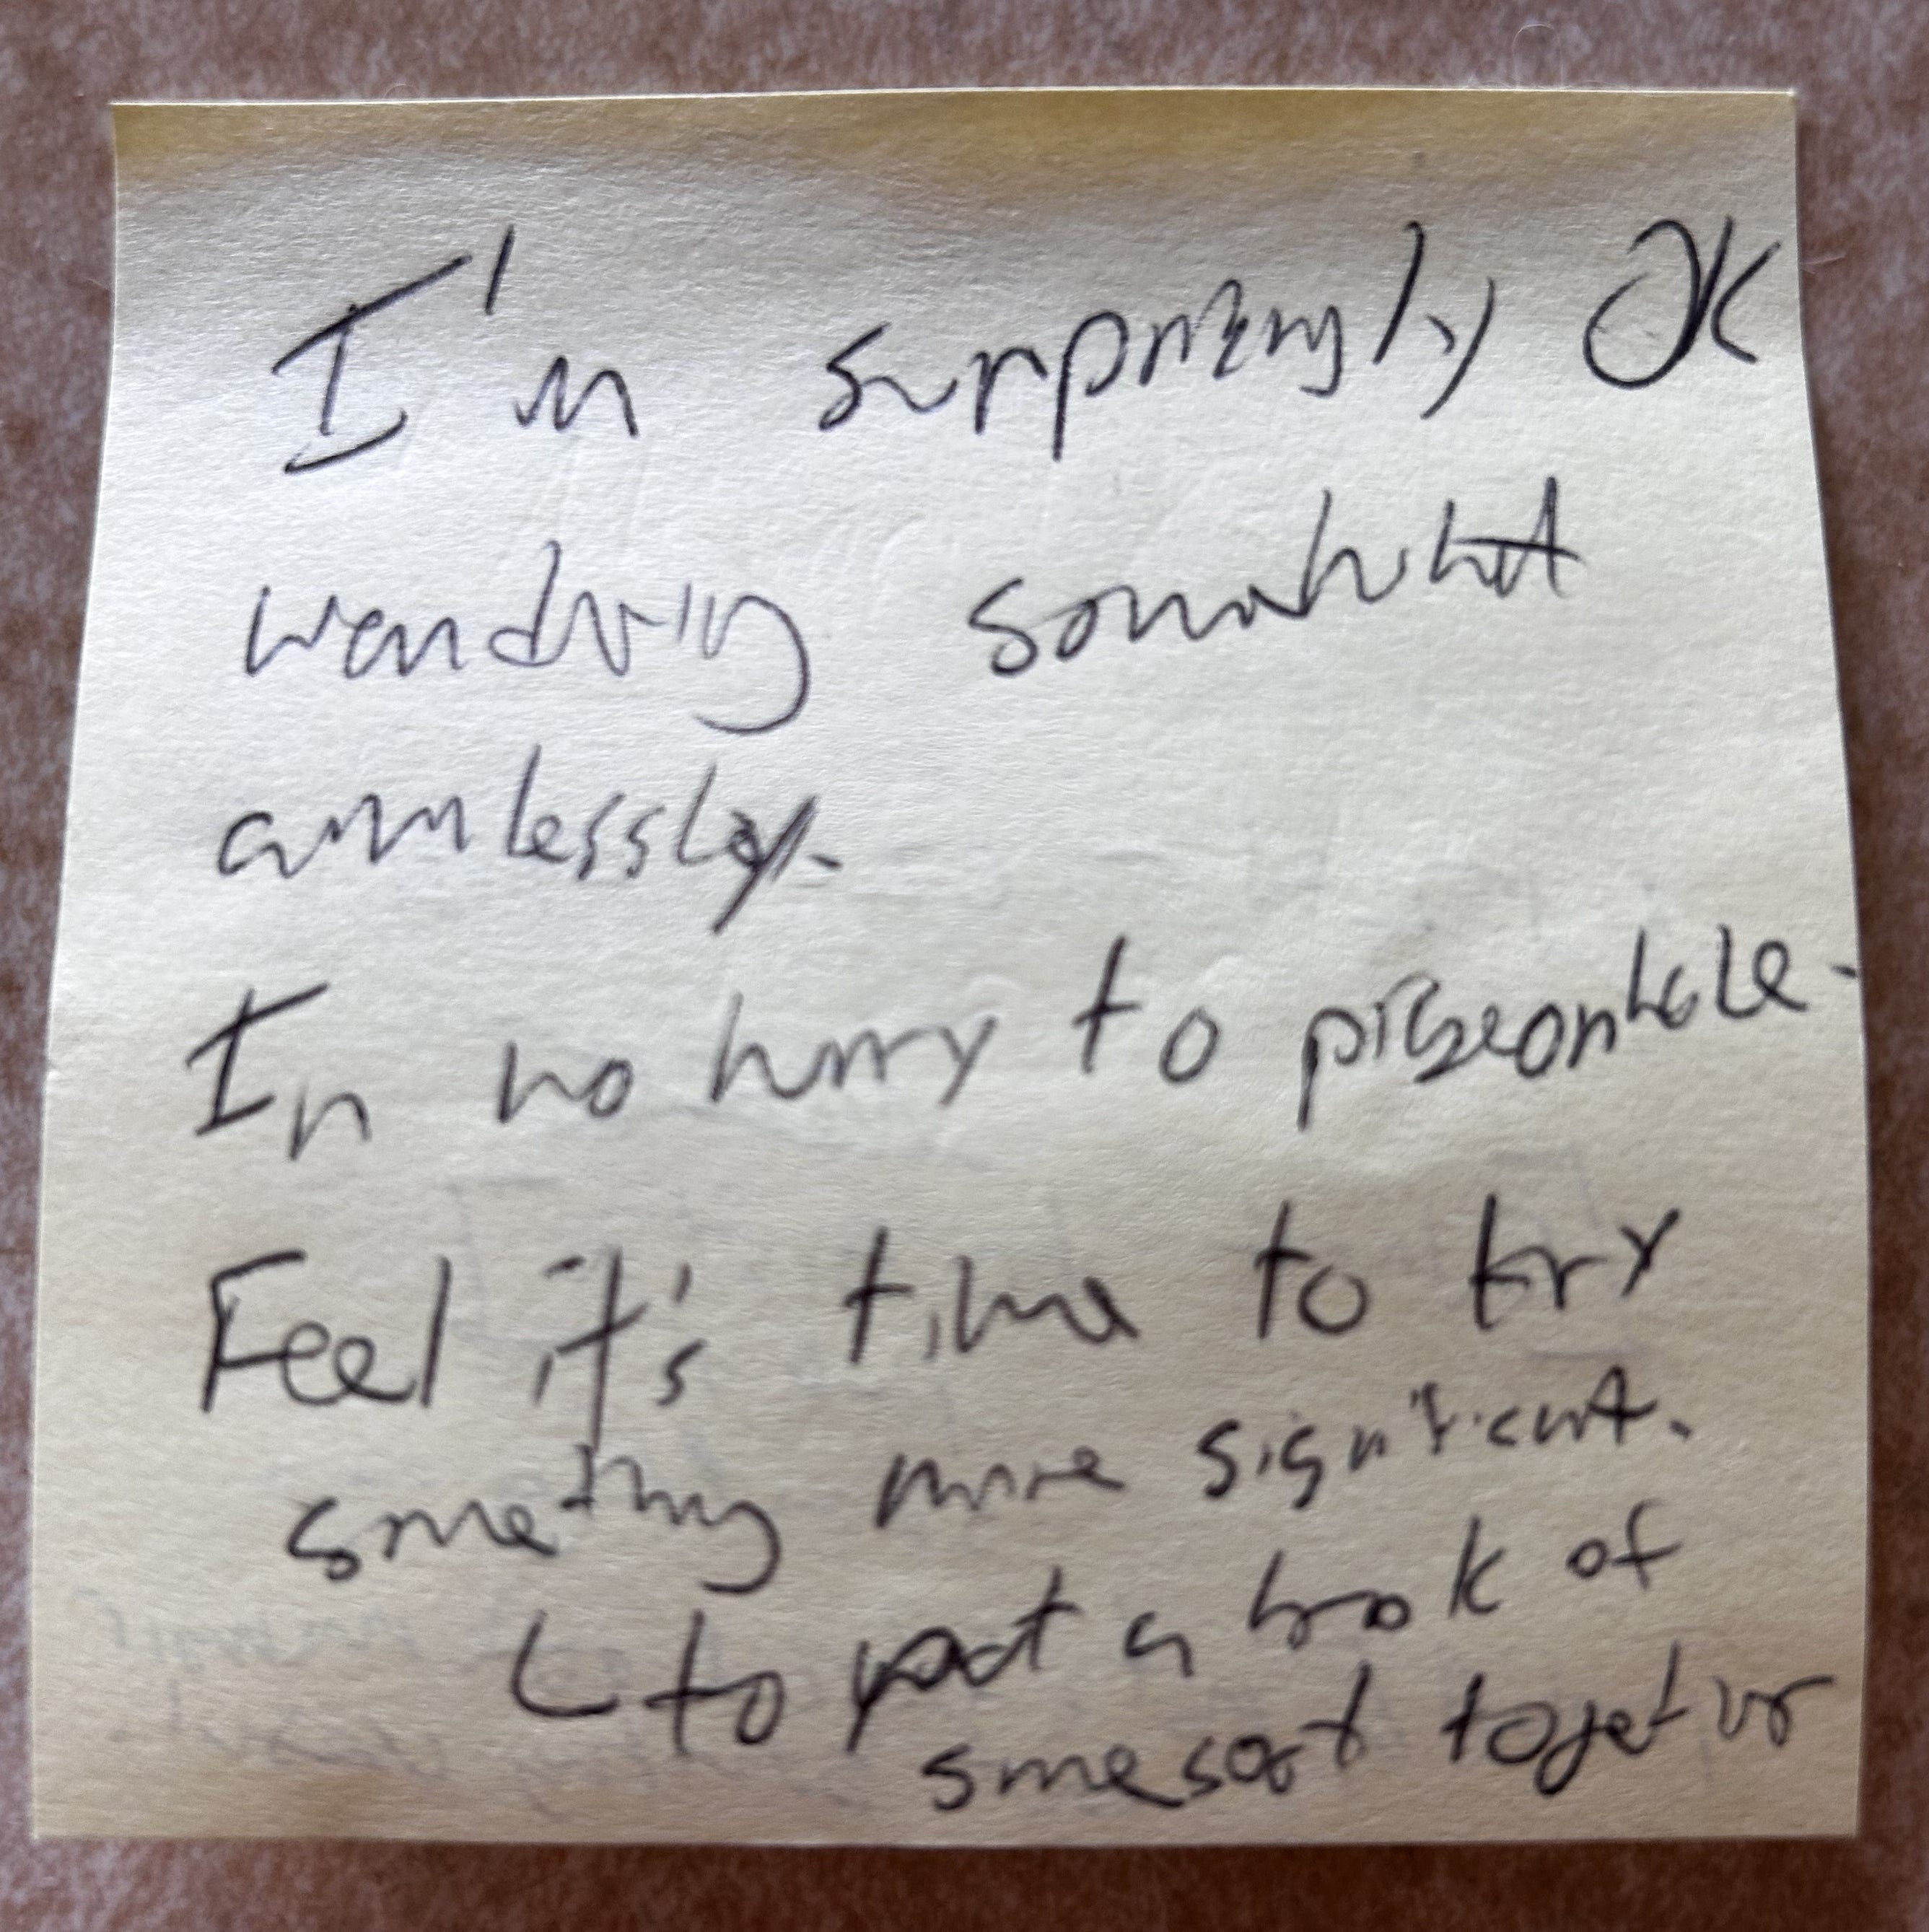 I'm surprizingly OK
wandring somewhat
aimlessly.
In no hurry to pigeonhole.
Feel it's time to try
something more significant.
↳ to put a book of
some sort together